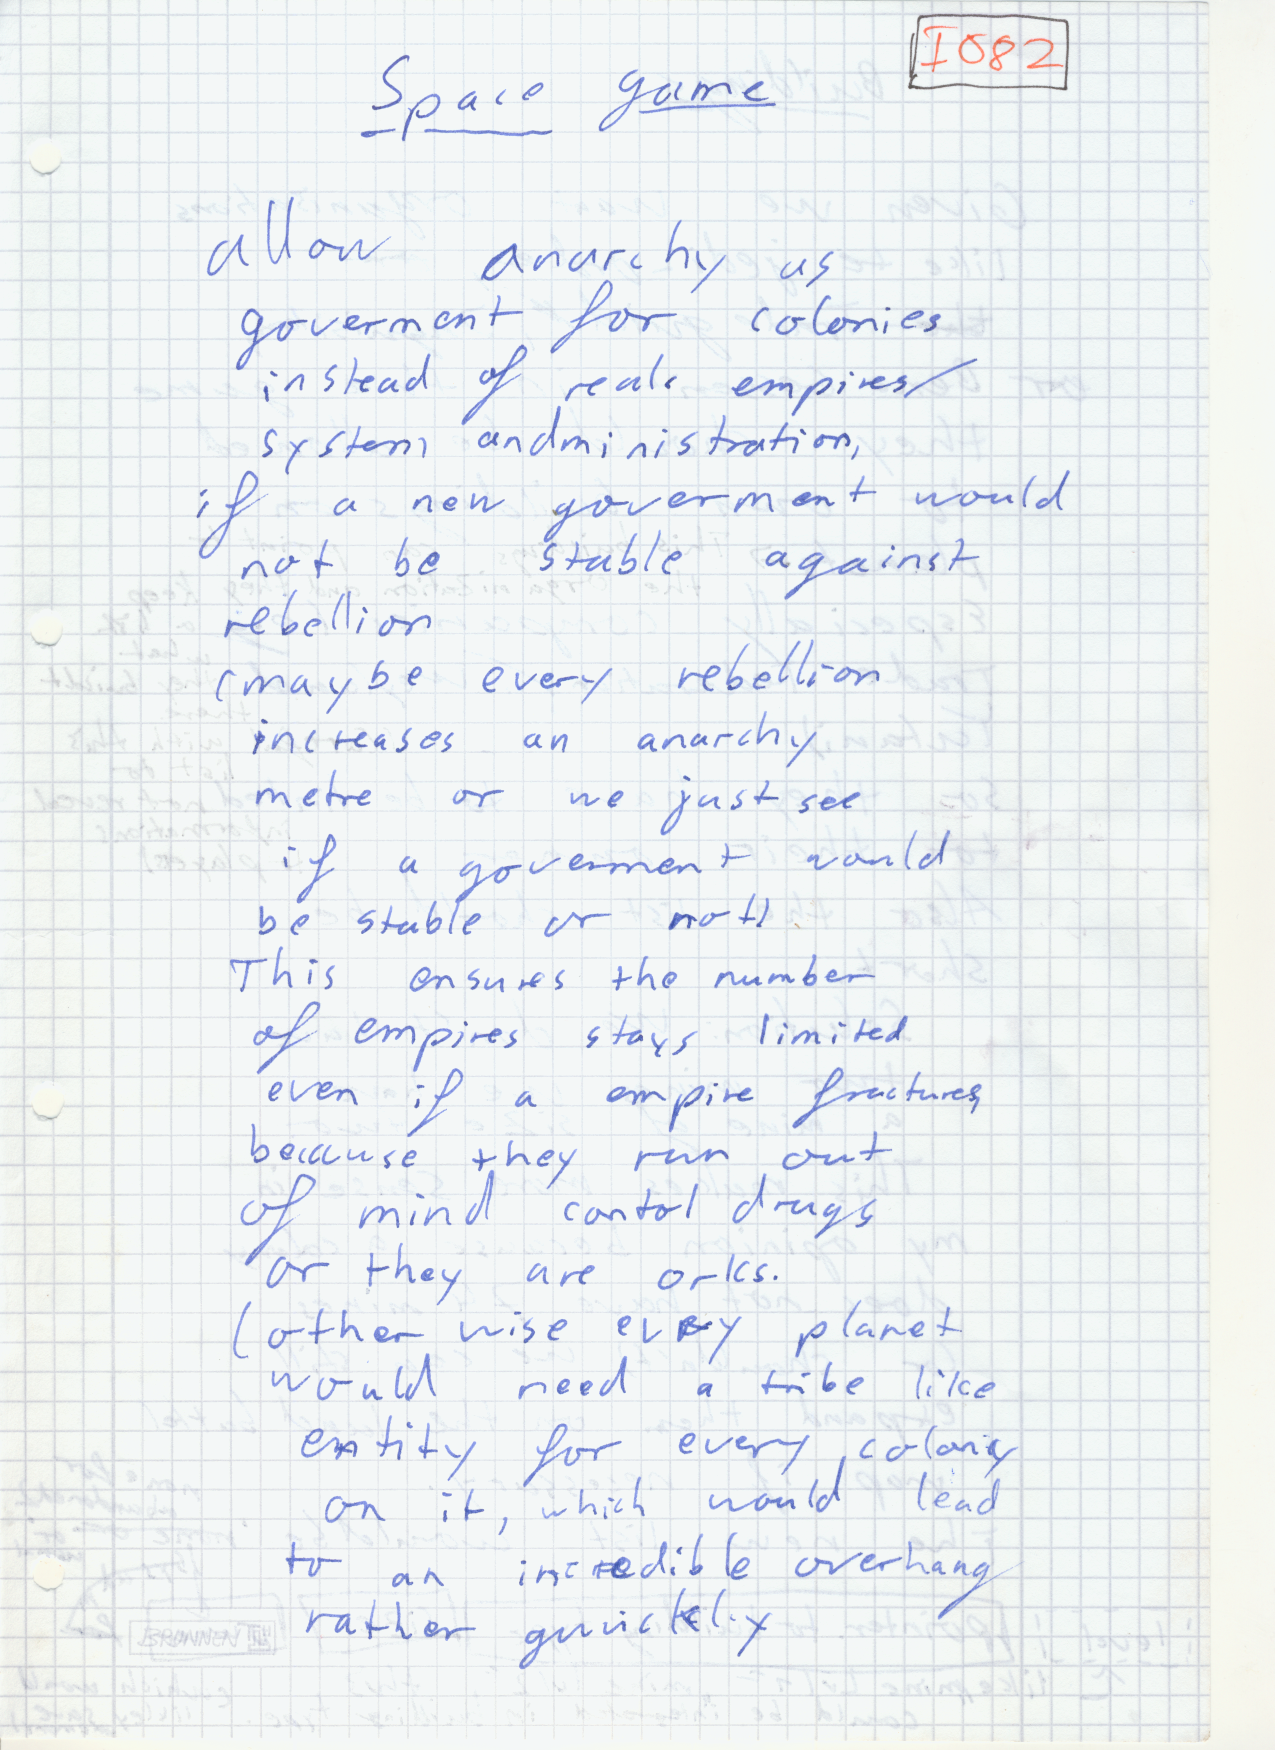 I082
Space game
allow anarchy as
goverment for colonies
instead of reals empires/
system andministration,
if a new goverment would
not be stable against
rebellion
(maybe every rebellion
increases an anarchy
metre or we just see
if a goverment would
be stable or not!
This ensures the number
of empires stays limited
even if a empire fractures,
because they run out
of mind contol drugs
or they are orks.
(other wise every planet
would need a tribe like
entity for every colony
on it, which would lead
to an incredible overhang
rather quuickly